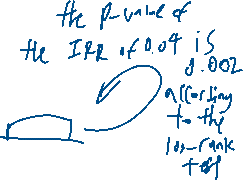 the p-value of
the IRR of 0.04 is
0.002
according
to the
log-rank
test